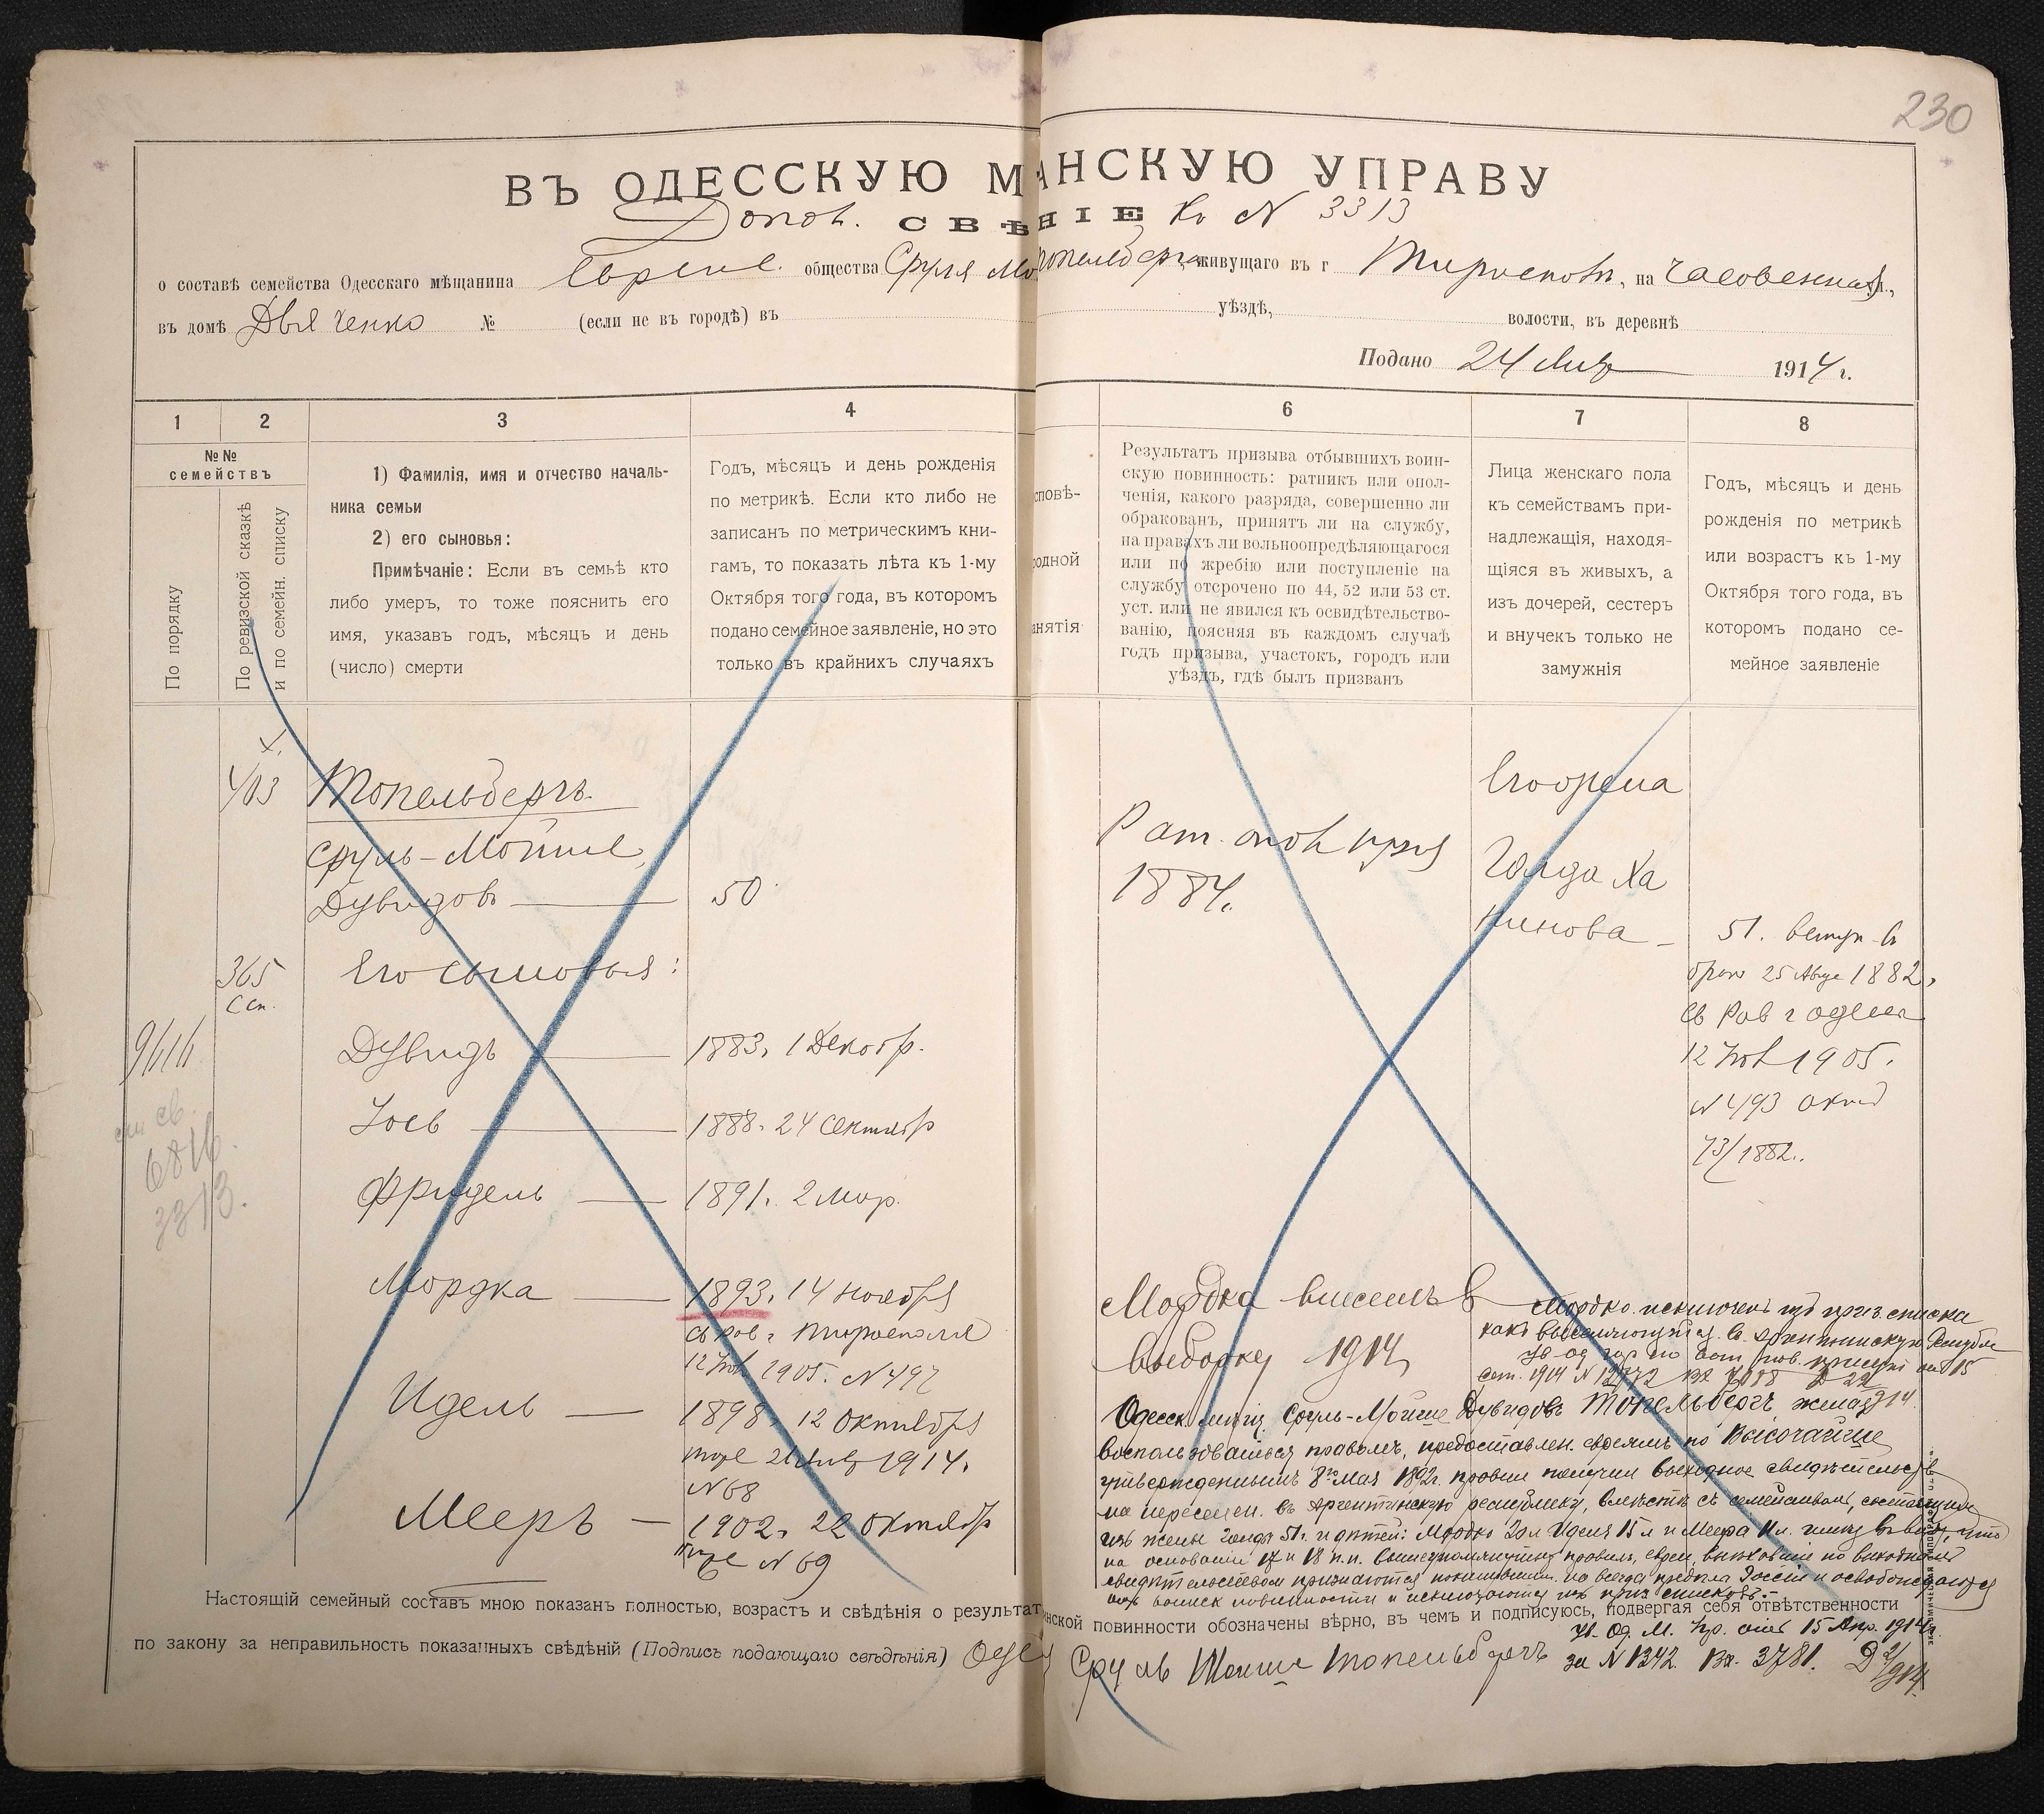 230
ВЪ ОДЕССКУЮ М АНСКУЮ УПРАВУ
Допол. СВѢ НІЕ Къ N 3313
о составѣ семейства Одесскаго мѣщанина Еврейс. общества Сруля Мо Топельберга, живущаго въ г Тирасполѣ, на Часовенная ул.,
въ домѣ Дьяченко № (если не въ городѣ) въ уѣздѣ, волости, въ деревнѣ
Подано 24 Янв 1914 г.
1 2 3 4 6 7 8
№№
семействъ
По порядку
По ревизской сказкѣ
и по семейн. списку
1) Фамилія, имя и отчество началь-
ника семьи
2) его сыновья:
Примѣчаніе: Если въ семьѣ кто
либо умеръ, то тоже пояснить его
имя, указавъ годъ, мѣсяцъ и день
(число) смерти
Годъ, мѣсяцъ и день рожденія
по метрикѣ. Если кто либо не
записанъ по метрическимъ кни-
гамъ, то показать лѣта къ 1-му
Октября того года, въ которомъ
подано семейное заявленіе, но это
только въ крайнихъ случаяхъ
сповѣ-
одной
анятія
Результатъ призыва отбывшихъ воин-
скую повинность: ратникъ или опол-
ченія, какого разряда, совершенно ли
обракованъ, принятъ ли на службу,
на правахъ ли вольноопредѣляющагося
или по жребію или поступленіе на
службу отсрочено по 44, 52 или 53 ст.
уст. или не явился къ освидѣтельство-
ванію, поясняя въ каждомъ случаѣ
годъ призыва, участокъ, городъ или
уѣздъ, гдѣ былъ призванъ
Лица женскаго пола
къ семействамъ при-
надлежащія, находя-
щіяся въ живыхъ, а
изъ дочерей, сестеръ
и внучекъ только не
замужнія
Годъ, мѣсяцъ и день
рожденія по метрикѣ
или возрастъ къ 1-му
Октября того года, въ
которомъ подано се-
мейное заявленіе
403 Топельбергъ
Сруль-Мойше
Дувидовъ 50
365
Сен.
Его сыновья:
9616
Дувидъ 1883. 1 Декабр.
Іось 1888. 24 Сентябр
см св.
6816.
3313.
Фридель 1891. 2 Мар.
Мордка 1893. 14 Ноября
св рав. г Тирасполя
12 Ноя 1905. N 492
Идель 1898. 12 Октября
тоже 21 Янв 1914.
N 68
Мееръ 1902. 22 Октябр
тоже N 69
Рат. опол приз
1884.
Его жена
Голда Ха
нинова 51. вступ. въ
бракъ 25 Авгу 1882.
св Рав г Одессы
12 Ноя 1905.
N 493 актъ
73/1882.
Мордка внесенъ в
выборку 1914
Мордко исключенъ изъ приз. списка
какъ выселяющійся въ Аргентинскую Республ
сент. 1914 N 12972
Одесск. мѣщ. Сруль-Мойше Дувидовъ Топельбергъ желая
воспользоваться правомъ, предоставлен. евреямъ по Высочайше
утвержденнымъ 8го Мая 1892г. правил получил выходное свидѣтельств
на переселен. въ Аргентинскую республику, вмѣстѣ съ семействомъ, состоящимъ
изъ жены Голды 51г. и дѣтей: Мордко 20л Иделя 15л и Меера 11л. имѣя въ виду, что
на основаніи 17 и 18 п.п. вышеупомянутыхъ правилъ, евреи, выѣхавшіе по выходнымъ
свидѣтельствамъ признаются покинувшими на всегда предѣлы Россіи и освобождаются
отъ воинск повинности и исключаются изъ приз списковъ.
Настоящій семейный составъ мною показанъ полностью, возрастъ и свѣдѣнія о результат инской повинности обозначены вѣрно, въ чемъ и подписуюсь, подвергая себя отвѣтственности
по закону за неправильность показанныхъ свѣдѣній (Подпись подающаго свѣдѣнія) Сруль Моише Топельбергъ
Ув. Од. М. Пр. отъ 15 Апр. 1914г.
за N 1342. Вх. 3781.